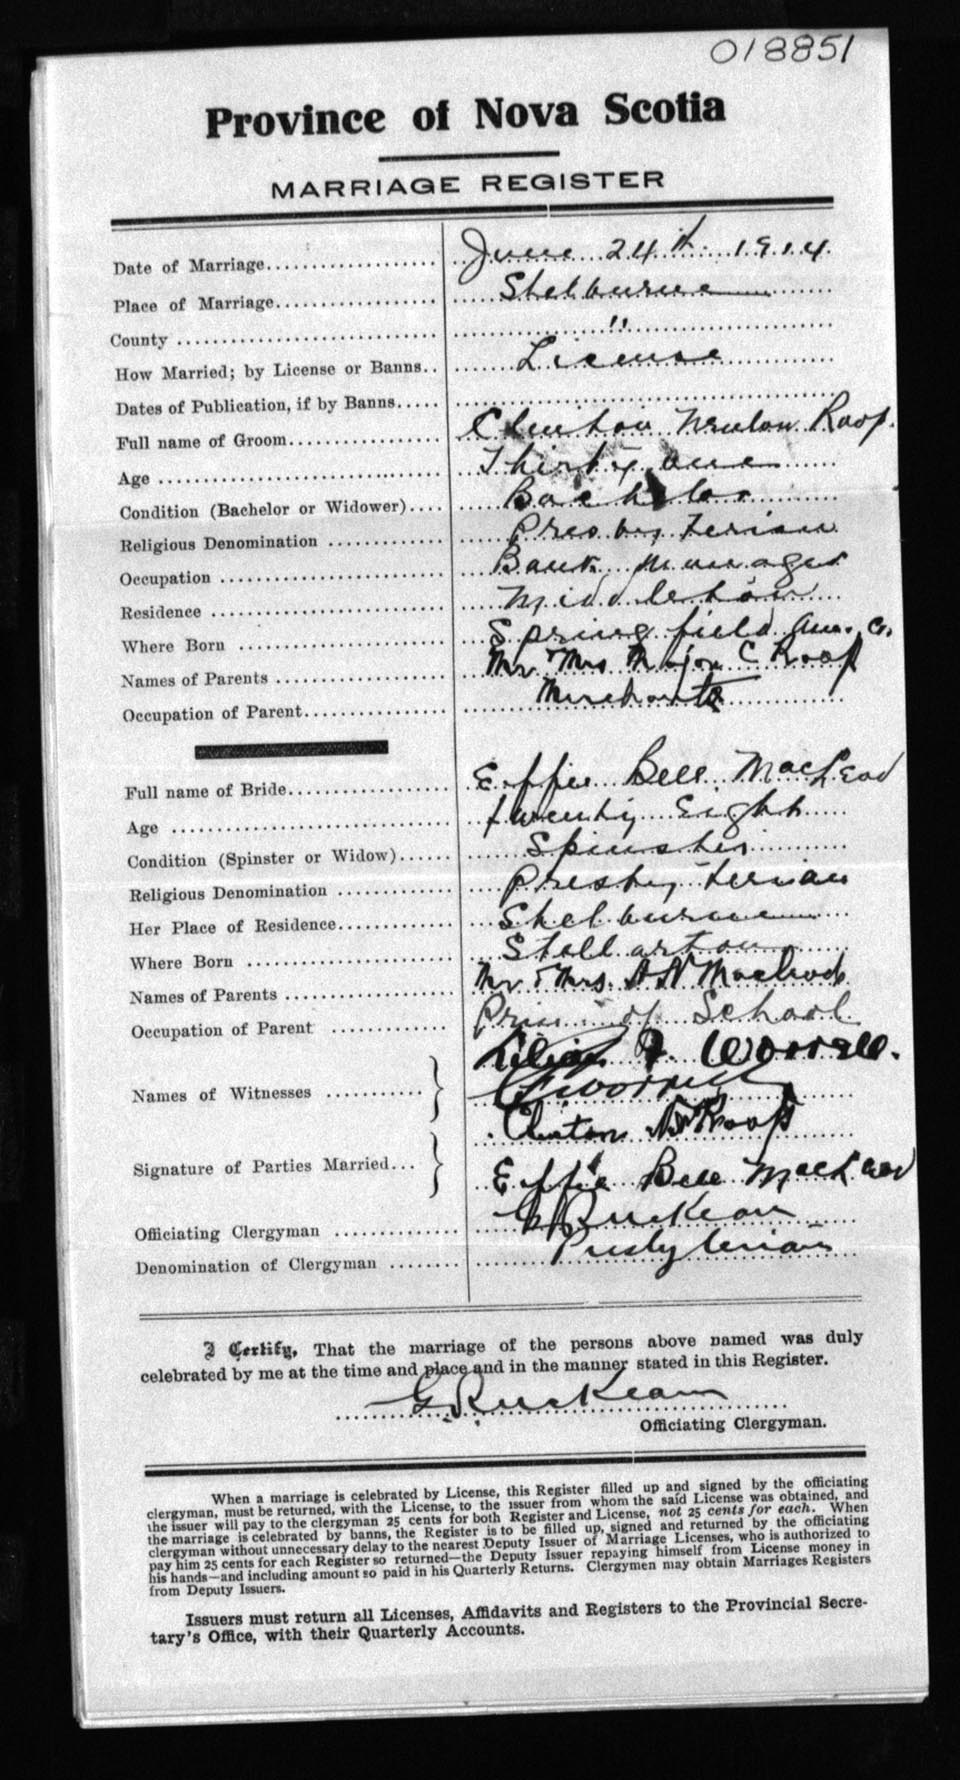 018851
Province of Nova Scotia
MARRIAGE REGISTER
Date of Marriage.................... June 24th 1914
Place of Marriage................... Shelburne
County ............................. "
How Married; by License or Banns.. License
Dates of Publication, if by Banns.....
Full name of Groom.................. Clinton Newton Roop.
Age ................................ Thirty one
Condition (Bachelor or Widower).... Bachelor
Religious Denomination ............. Presbyterian
Occupation ......................... Bank Manager
Residence .......................... Middleton
Where Born ......................... Springfield Ann. Co.
Names of Parents ................... Mr & Mrs Major C Roop
Occupation of Parent................ Merchant
Full name of Bride.................. Effie Bell MacLeod
Age ................................ twenty Eight
Condition (Spinster or Widow)...... Spinster
Religious Denomination ............. Presbyterian
Her Place of Residence.............. Shelburne
Where Born ......................... Stellarton
Names of Parents ................... Mr & Mrs. A N Macleod
Occupation of Parent ............... Prin of School
Names of Witnesses ........... Lilian F. Worrall.
Signature of Parties Married... Clinton N Roop
Effie Bell MacLeod
Officiating Clergyman ..............
Denomination of Clergyman ........ Presbyterian
I Certify, That the marriage of the persons above named was duly
celebrated by me at the time and place and in the manner stated in this Register.
Officiating Clergyman.
When a marriage is celebrated by License, this Register filled up and signed by the officiating
clergyman, must be returned, with the License, to the issuer from whom the said License was obtained, and
the issuer will pay to the clergyman 25 cents for both Register and License, not 25 cents for each. When
the marriage is celebrated by banns, the Register is to be filled up, signed and returned by the officiating
clergyman without unnecessary delay to the nearest Deputy Issuer of Marriage Licenses, who is authorized to
pay him 25 cents for each Register so returned—the Deputy Issuer repaying himself from License money in
his hands—and including amount so paid in his Quarterly Returns. Clergymen may obtain Marriages Registers
from Deputy Issuers.
Issuers must return all Licenses, Affidavits and Registers to the Provincial Secre-
tary's Office, with their Quarterly Accounts.